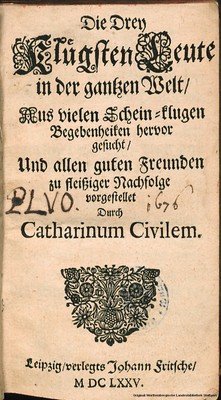 Die Drey
Klügsten Leute
in der gantzen Welt/
Aus vielen Schein-klugen
Begebenheiten hervor
gesucht/
Und allen guten Freunden
zu fleißiger Nachfolge
vorgestellet
PLVO. 1676
Durch
Catharinum Civilem.
Leipzig/verlegts Johann Fritsche/
M DC LXXV.
Original Württembergische Landesbibliothek Stuttgart